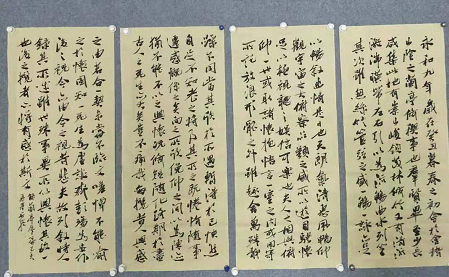 永和九年歲在癸丑暮春之初會於會稽
山陰之蘭亭修禊事也群賢畢至少長
咸集此地有崇山峻領茂林脩竹又有清流
激湍映帶左右引以為流觴曲水列坐
其次雖無絲竹管弦之盛一觴一詠亦足
以暢敘幽情是日也天朗氣清惠風和暢仰
觀宇宙之大俯察品類之盛所以遊目騁懷
足以極視聽之娛信可樂也夫人之相與俯
仰一世或取諸懷抱悟言一室之內或因寄
所託放浪形骸之外雖趣舍萬殊靜
躁不同當其欣於所遇暫得於己快然
自足不知老之將至及其所之既惓情隨事
遷感慨係之矣向之所欣俛仰之間以為陳迹
猶不能不以之興懷況脩短隨化終期於盡
古人云死生亦大矣豈不痛哉每攬昔人興感
之由若合一契未嘗不臨文嗟悼不能喻
之於懷固知一死生為虛誕齊彭殤為妄作
後之視今亦由今之視昔悲夫故列敘時人
錄其所述雖世殊事異所以興懷其致一
也後之攬者亦將有感於斯文